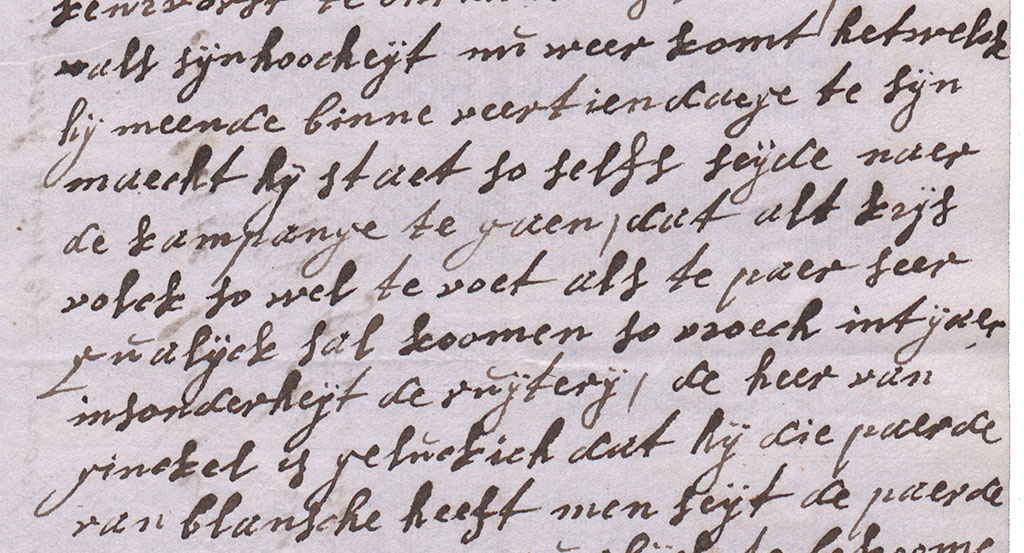 als syn hoocheyt nu weer komt / hetwelck
hy meende binne veertien daege te syn
maeckt hy staet so selfs seyde naer
de kampange te gaen / dat alt krys
volck so wel te voet als te paer seer
qualyck sal koomen so vroech int jaer
insonderheyt de ruytery / de heer van
ginckel is geluckich dat hy die paerde
van blansche heeft men seyt de paerde